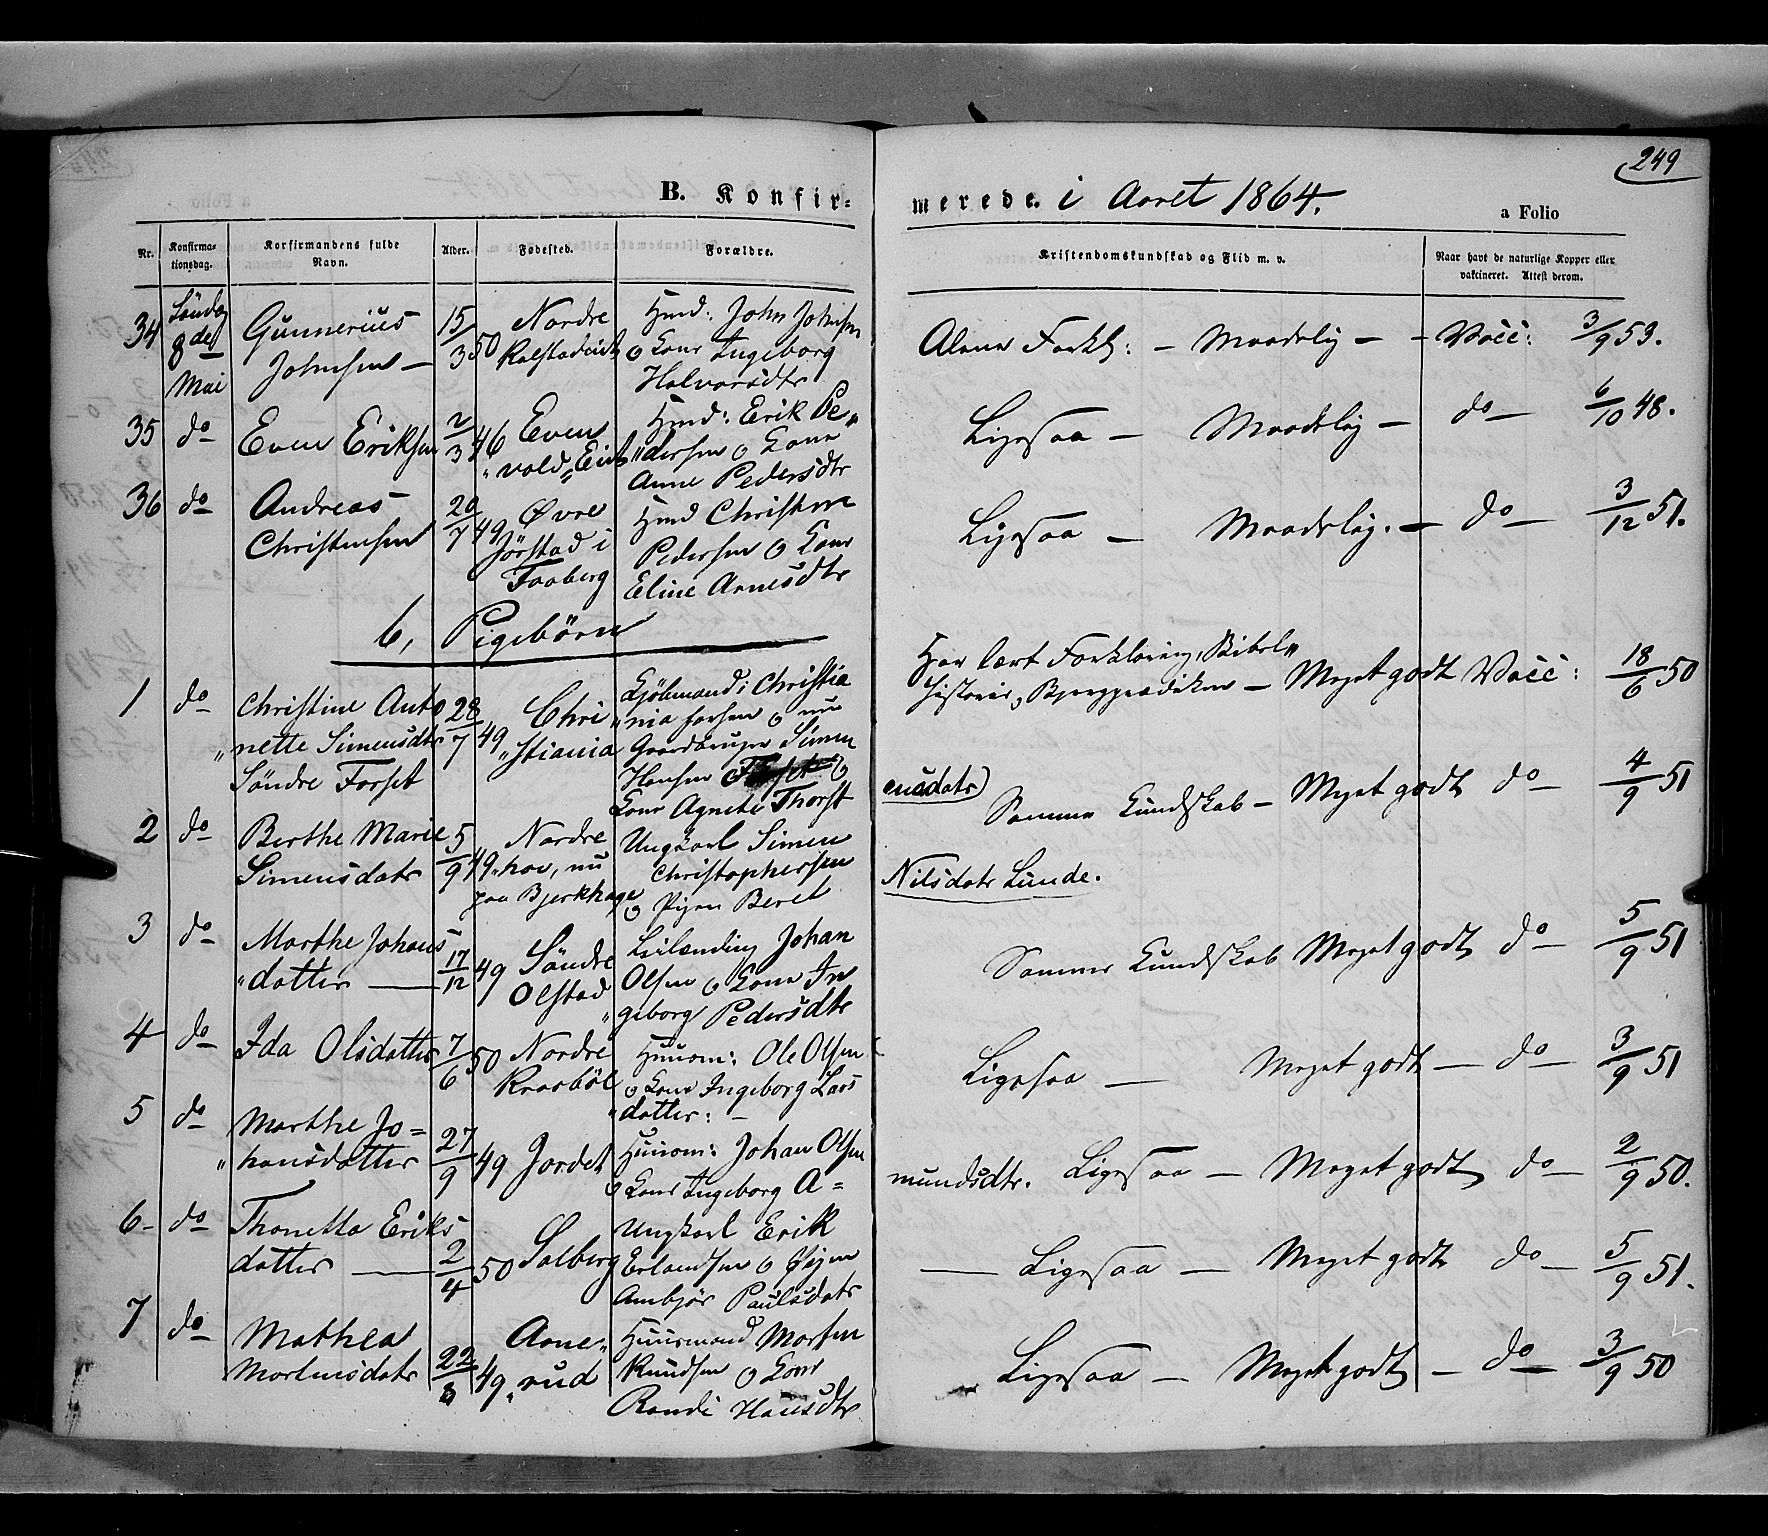 249
B. Konfir=
merede. i Aaret 1864.
a Folio
Nr.
Konfirma-
tionsdag.
Konfirmandens fulde
Navn.
Alder.
Fødested.
Forældre.
Kristendomskundskab og Flid m. v.
Naar havt de naturlige Kopper eller
vakcineret. Attest derom.
34
Søndag
8de
Mai
Gunnerius
Johnsen —
15/3 50
Nordre
Hmd: John Johnsen
o Kone Ingeborg
Halvorsdtr
Alene Forkl: — Maadelig — - Vacc: 3/9 53.
35 do
Even Eriksen
2/3 46
Even
„vold„Eiet
Hmd: Erik Pe„
„dersen o Kone
Anne Pedersdtr
Ligesaa — Maadelig — do — 6/10 48.
36 do
Andreas
Christensen
20/7 49
Øvre
Jørstad i
Faaberg
Hmd Christen
Pedersen o Kone
Eline Arnesdtr
Ligesaa — Maadelig. — do — 3/12 51.
6, Pigebørn
1 do
Christine Anto
„nette Simensdtr
Søndre Forset
28/7 49
Chri
„stiania
Kjøbmand i Christia
„nia forhen o nu
Gaardbruger Simen
Hansen Forset o
Kone Agnete Thorst
ensdatr)
Har lært Forklaring, Bibel„
historie, Bjergprædiken — Meget godt Vacc: 18/6 50
2 do
Berthe Marie
Simensdatr
5/9 49
Nordre
„hov, nu
paa Bjerkhage
Ungkarl Simen
Christophersen
o Pigen Beret
Nilsdatr Lunde.
Samme Kundskab — Meget godt do — 4/9 51
3 do
Marthe Johans
„datter —
17/12 49
Søndre
Olstad
Leilending Johan
Olsen o Kone In
„geborg Pedersdtr
Samme Kundskab Meget godt do — 5/9 51
4 do
Ida Olsdatter
7/6 50
Nordre
Kraabøl
Huusm: Ole Olsen
o Kone Ingeborg Lars
„datter: —
Ligesaa — Meget godt — do — 3/9 51
5 do
Marthe Jo=
„hansdatter
27/9 49
Jordet
Huusm: Johan Olsen
o Kone Ingeborg A=
mundsdtr. Ligesaa — Meget godt do — 2/9 50.
6- do
Thonette Eriks
datter —
2/4 50
Solberg
Ungkarl Erik
Erlandsen o Pigen
Ambjør Paulsdatr
— Ligesaa — Meget godt do — 5/9 51.
7 do
Mathea
Mortensdatr
22/8 49
Arne„
„rud
Huusmand Morten
Knudsen o Kone
Randi Hansdtr
Ligesaa — Meget godt — do — 3/9 50